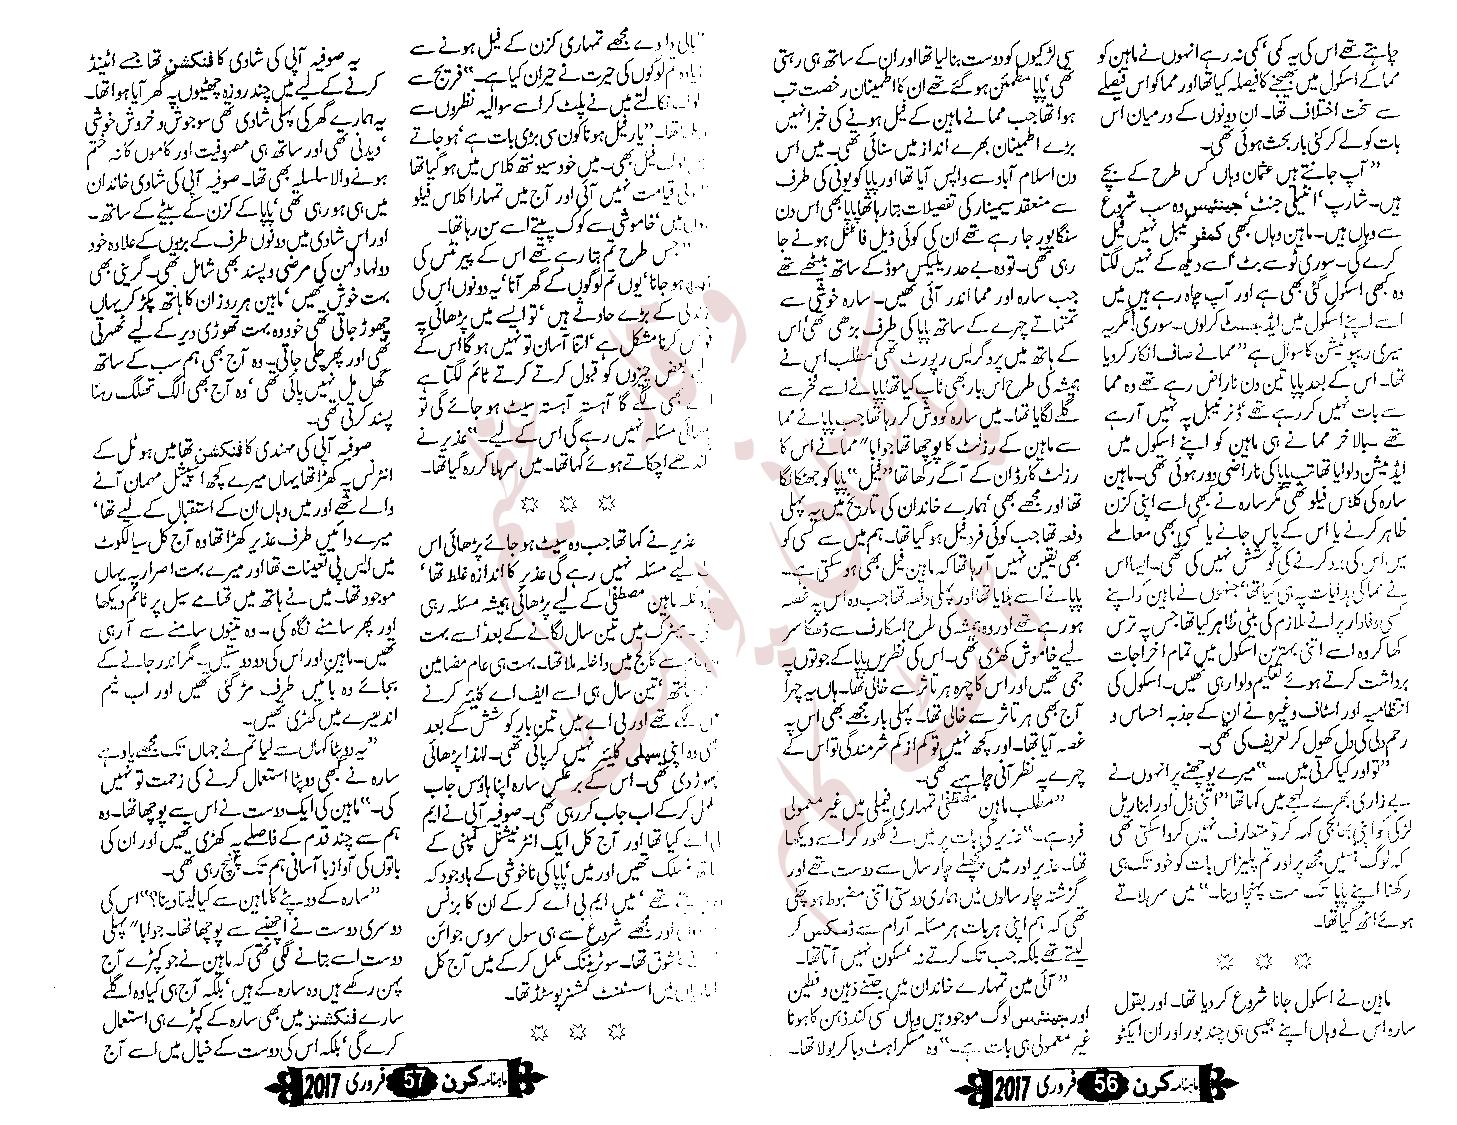 چاہتے تھے اس کی یہ کمی‘ کمی نہ رہے انہوں نے ماہین کو
مما کے اسکول میں بھیجنے کا فیصلہ کیا تھا اور مما کو اس فیصلے
سے سخت اختلاف تھا۔ ان دونوں کے درمیان اس
بات کو لے کر کئی بار بحث ہوئی تھی۔
”آپ جانتے ہیں عثمان وہاں کس طرح کے بچے
ہیں۔ شارپ‘ انٹیلی جنٹ‘ جینئیس وہ سب شروع
سے وہاں ہیں۔ ماہین وہاں بھی کمفرٹیبل نہیں فیل
کرے گی۔ سوری ٹو سے بٹ اسے دیکھ کے نہیں لگتا
وہ کبھی اسکول گئی بھی ہے اور آپ چاہ رہے ہیں میں
اسے اپنے اسکول میں ایڈمیٹ کرلوں۔ سوری! مگر یہ
میری ریپوٹیشن کا سوال ہے“ ممانے صاف انکار کردیا
تھا۔ اس کے بعد پاپا تین دن ناراض رہے تھے وہ مما
سے بات نہیں کر رہے تھے ڈنر ٹیبل پہ نہیں آرہے
تھے بالاخر ممانے ہی ماہین کو اپنے اسکول میں
ایڈمیشن دلوایا تھا تب پاپا کی ناراضی دور ہوئی تھی۔ ماہین
سارہ کی کلاس فیلو تھی مگر سارہ نے کبھی اسے اپنی کزن
ظاہر کرنے یا اس کے پاس جانے یا کسی بھی معاملے
میں اس کی مدد کرنے کی کوشش نہیں کی تھی۔ ایسا اس
نے مما کی ہدایات پہ ہی کیا تھا‘ جنہوں نے ماہین کو اپنے
کسی وفادار پرانے ملازم کی بیٹی ظاہر کیا تھا جس پہ ترس
کھا کر وہ اسے اتنی بہترین اسکول میں تمام اخراجات
برداشت کرتے ہوئے تعلیم دلوا رہی تھیں۔ اسکول کی
انتظامیہ اور اسٹاف وغیرہ نے ان کے جذبہ احساس و
رحم دلی کی دل کھول کر تعریف کی تھی۔
”تو اور کیا کرتی میں۔۔۔“ میرے پوچھنے پر انہوں نے
بے زاری بھرے لہجے میں کہا تھا ”اتنی ڈل اور ابنارمل
لڑکی کو اپنی بھانجی کہہ کر متعارف نہیں کرواسکتی تھی
کہ لوگ ہنسیں مجھ پر اور تم پلیز اس بات کو خود تک ہی
رکھنا اپنے پاپا تک مت پہنچا دینا۔“ میں سر ہلاتے
ہوئے اٹھ گیا تھا۔
☼ ☼ ☼
ماہین نے اسکول جانا شروع کردیا تھا۔ اور بقول
سارہ اس نے وہاں اپنے جیسی ہی چند بور اور ان ایکٹو
سی لڑکیوں کو دوست بنالیا تھا اور ان کے ساتھ ہی رہتی
تھی‘ پاپا مطمئن ہوگئے تھے ان کا اطمینان رخصت تب
ہوا تھا جب ممانے ماہین کے فیل ہونے کی خبر انہیں
بڑے اطمینان بھرے انداز میں سنائی تھی۔ میں اس
دن اسلام آباد سے واپس آیا تھا اور پاپا کو یونی کی طرف
سے منعقد سیمینار کی تفصیلات بتا رہا تھا پاپا بھی اس دن
سنگاپور جا رہے تھے ان کی کوئی ڈیل فائنل ہونے جا
رہی تھی۔ تو وہ بے حد ریلیکس موڈ کے ساتھ بیٹھے تھے
جب سارہ اور مما اندر آئی تھیں۔ سارہ خوشی سے
تمتماتے چہرے کے ساتھ پاپا کی طرف بڑھی تھی‘ اس
کے ہاتھ میں پروگریس رپورٹ تھی مطلب اس نے
ہمیشہ کی طرح اس بار بھی ٹاپ کیا تھا‘ پاپا نے اسے فخر سے
گلے لگایا تھا۔ میں سارہ کو وش کر رہا تھا جب پاپا نے مما
سے ماہین کے رزلٹ کا پوچھا تھا جوابا“ ممانے اس کا
رزلٹ کارڈ ان کے آگے رکھا تھا ”فیل“ پاپا کو جھٹکا لگا
تھا اور مجھے بھی‘ ہمارے خاندان کی تاریخ میں یہ پہلی
دفعہ تھا جب کوئی فرد فیل ہو گیا تھا۔ ہم میں سے کسی کو
بھی یقین نہیں آرہا تھا کہ ماہین فیل بھی ہو سکتی ہے۔
پاپا نے اسے بلایا تھا اور پہلی دفعہ تھا جب وہ اس پہ غصہ
ہو رہے تھے اور وہ ہمیشہ کی طرح اسکارف سے ڈھکا سر
لیے خاموش کھڑی تھی۔ اس کی نظریں پاپا کے جوتوں پہ
جمی تھیں اور اس کا چہرہ ہر تاثر سے خالی تھا۔ ہاں یہ چہرا
آج بھی ہر تاثر سے خالی تھا۔ پہلی بار مجھے بھی اس پہ
غصہ آیا تھا۔ اور کچھ نہیں تو کم از کم شرمندگی تو اس کے
چہرے پہ نظر آنی چاہیے تھی۔
”مطلب ماہین مصطفیٰ تمہاری فیملی میں غیر معمولی
فرد ہے۔“ عذیر کی بات پر میں نے گھور کر اسے دیکھا
تھا۔ عذیر اور میں پچھلے چار سال سے دوست تھے اور
گزشتہ چار سالوں میں ہماری دوستی اتنی مضبوط ہوچکی
تھی کہ ہم اپنی ہر بات ہر مسئلہ آرام سے ڈسکس کر
لیتے تھے بلکہ جب تک کرتے نہ‘ سکون نہیں آتا تھا۔
”آئی مین تمہارے خاندان میں جتنے ذہین و فطین
اور جینئیس لوگ موجود ہیں وہاں کسی کند ذہن کا ہونا
غیر معمولی ہی بات ہے۔“ وہ مسکراہٹ دبا کر بولا تھا۔
ماہنامہ کرن 56 فروری 2017
دے مجھے تمہاری کزن کے فیل ہونے سے
تم لوگوں کی حیرت نے حیران کیا ہے۔“ فریج سے
نکالتے میں نے پلٹ کر اسے سوالیہ نظروں سے
تھا۔ ”یار فیل ہونا کون سی بڑی بات ہے‘ ہو جاتے
فیل بھی۔ میں خود سیونتھ کلاس میں ہو گیا تھا
قیامت نہیں آئی اور آج میں تمہارا کلاس فیلو
میں خاموشی سے کوک پیتے اسے سن رہا تھا۔
”جس طرح تم بتا رہے تھے اس کے پیرنٹس کی
ہو جانا‘ یوں تم لوگوں کے گھر آنا‘ یہ دونوں اس کی
کے بڑے حادثے ہیں‘ تو ایسے میں پڑھائی پہ
کرنا مشکل ہے‘ اتنا آسان تو نہیں ہو گا اس کے
بعض چیزوں کو قبول کرتے کرتے ٹائم لگتا ہے
بھی لگے گا آہستہ آہستہ سیٹ ہو جائے گی تو
مسئلہ نہیں رہے گی اس کے لیے۔“ عذیر نے
اچکاتے ہوئے کہا تھا۔ میں سر ہلا کر رہ گیا تھا۔
☼ ☼ ☼
عذیر نے کہا تھا جب وہ سیٹ ہو جائے پڑھائی اس
لیے مسئلہ نہیں رہے گی عذیر کا اندازہ غلط تھا‘
ماہین مصطفیٰ کے لیے پڑھائی ہمیشہ مسئلہ رہی
میٹرک میں تین سال لگانے کے بعد اسے بہت
سے کالج میں داخلہ ملا تھا۔ بہت ہی عام مضامین
ساتھ‘ تین سال ہی اسے ایف اے کلیئر کرنے
تھے اور بی اے میں تین بار کوشش کے بعد
وہ اپنی سپلی کلیئر نہیں کرپائی تھی۔ لہٰذا پڑھائی
دی تھی۔ اس کے برعکس سارہ اپنا ہاؤس جاب
کرکے اب جاب کر رہی تھی۔ صوفیہ آپی نے ایم
کیا تھا اور آج کل ایک انٹر نیشنل کمپنی کے
منسلک تھیں اور میں‘ پاپا کی ناخوشی کے باوجود کہ
تھے‘ میں ایم بی اے کرکے ان کا بزنس
اور مجھے شروع سے ہی سول سروس جوائن
شوق تھا۔ سو ٹریننگ مکمل کرکے میں آج کل
میں اسسٹنٹ کمشنر پوسٹڈ تھا۔
☼ ☼ ☼
یہ صوفیہ آپی کی شادی کا فنکشن تھا جسے اٹینڈ
کرنے کے لیے میں چند روزہ چھٹیوں پہ گھر آیا ہوا تھا۔
یہ ہمارے گھر کی پہلی شادی تھی سو جوش و خروش خوشی
‘دیدنی تھی اور ساتھ ہی مصروفیت اور کاموں کا نہ ختم
ہونے والا سلسلہ بھی تھا۔ صوفیہ آپی کی شادی خاندان
میں ہی ہو رہی تھی‘ پاپا کے کزن کے بیٹے کے ساتھ۔
اور اس شادی میں دونوں طرف کے بڑوں کے علاوہ خود
دولہا دلہن کی مرضی و پسند بھی شامل تھی۔ گرینی بھی
بہت خوش تھیں‘ ماہین ہر روز ان کا ہاتھ پکڑ کر یہاں
چھوڑ جاتی تھی خود وہ بہت تھوڑی دیر کے لیے ٹھہرتی
تھی اور پھر چلی جاتی۔ وہ آج بھی ہم سب کے ساتھ
گھل مل نہیں پائی تھی‘ وہ آج بھی الگ تھلگ رہنا
پسند کرتی تھی۔
صوفیہ آپی کی مہندی کا فنکشن تھا میں ہوٹل کے
انٹرنس پہ کھڑا تھا یہاں میرے کچھ اسپیشل مہمان آنے
والے تھے اور میں وہاں ان کے استقبال کے لیے تھا‘
میرے دائیں طرف عذیر کھڑا تھا وہ آج کل سیالکوٹ
میں ایس پی تعینات تھا اور میرے بہت اصرار پہ یہاں
موجود تھا۔ میں نے ہاتھ میں تھامے سیل پر ٹائم دیکھا
اور پھر سامنے نگاہ کی۔ وہ تینوں سامنے سے آرہی
تھیں۔ ماہین اور اس کی دو دوستیں۔ مگر اندر جانے کے
بجائے وہ بائیں طرف مڑ گئی تھیں اور اب نیم
اندھیرے میں کھڑی تھیں۔
”یہ دوپٹا کہاں سے لیا تم نے جہاں تک مجھے یاد ہے
سارہ نے کبھی دوپٹا استعمال کرنے کی زحمت تو نہیں
کی۔“ ماہین کی ایک دوست نے اس سے پوچھا تھا۔ وہ
ہم سے چند قدم کے فاصلے پہ کھڑی تھیں اور ان کی
باتوں کی آواز با آسانی ہم تک پہنچ رہی تھی۔
”سارہ کے دوپٹے کا ماہین سے کیا لینا دینا؟“ اس کی
دوسری دوست نے اچنبھے سے پوچھا تھا۔ جوابا“ پہلی
دوست اسے بتانے لگی تھی کہ ماہین نے جو کپڑے آج
پہن رکھے ہیں وہ سارہ کے ہیں‘ بلکہ آج ہی کیا وہ اگلے
سارے فنکشنز میں بھی سارہ کے کپڑے ہی استعمال
کرے گی‘ بلکہ اس کی دوست کے خیال میں اسے آج
ماہنامہ کرن 57 فروری 2017